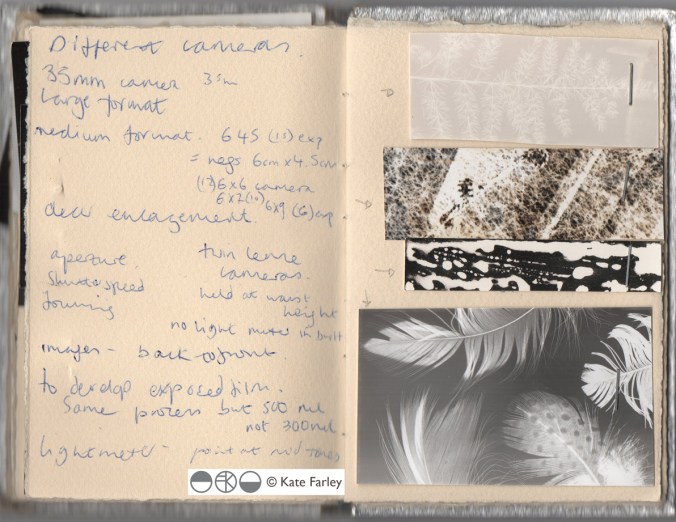 Different cameras.
35mm camera 35m
Large format
medium format. 645 (15) exp
= negs 6cm x 4.5cm
(12) 6x6 camera
6x7 (10)
6x9 (8) exp
clear enlagement.
aperture. twin lense
Shutterspeed cameras.
focusing held at waist
height
no light meter in built
images - back to front.
to develop exposed film.
Same process but 500 mil
not 300mil
lightmeter - point at mid tones
© Kate Farley